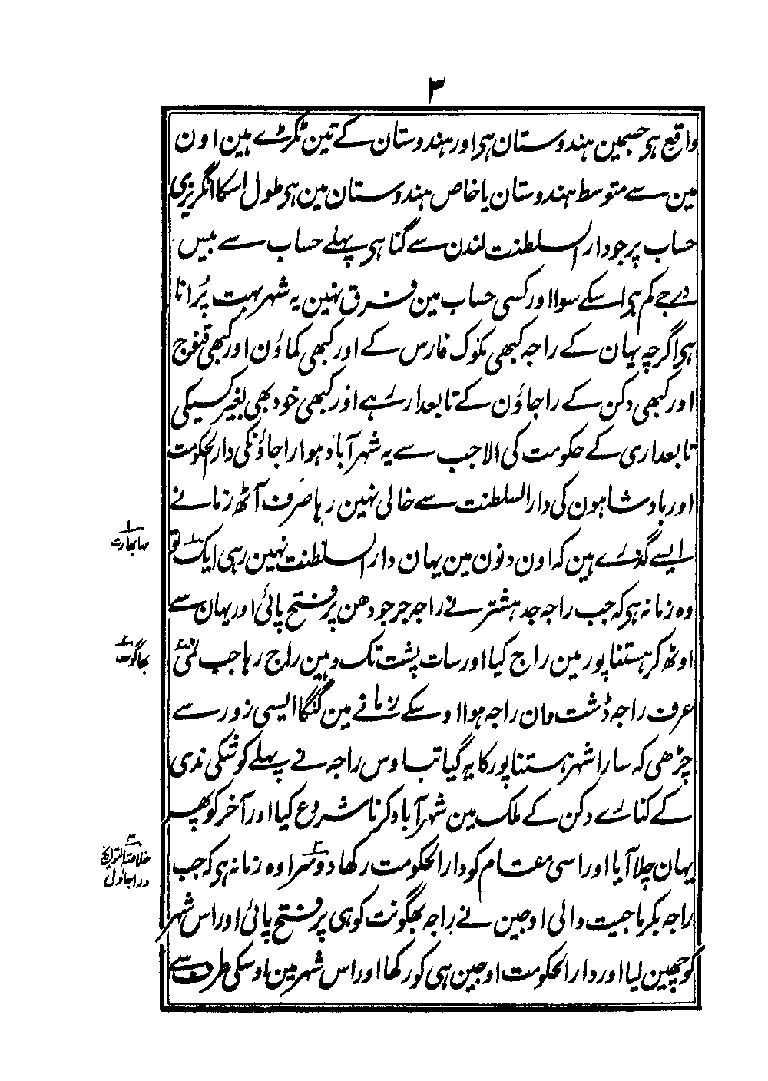 ۳
واقع ہی جسمین ہندوستان ہی اور ہندوستان کے تین ٹکڑے ہین اون
مین سے متوسط ہندوستان یا خاص ہندوستان مین ہی طول اسکا انگریزی
حساب پر جو دار السلطنت لندن سے گنا ہی پہلے حساب سے بیس
درجے کم ہی اسکے سوا اور کسی حساب مین فرق نہین یہ شہر بہت پُرانا
ہی اگرچہ یہان کے راجہ کبھی ملوک فارس کے اور کبھی کماؤن اور کبھی قنوج
اور کبھی دکن کے راجاؤن کے تابعدار رہے اور کبھی خود بھی بغیر کسیکی
تابعداری کے حکومت کی الا جب سے یہ شہر آباد ہوا راجاؤنکی دار الحکومت
اور بادشاہون کی دار السلطنت سے خالی نہین رہا صرف آٹھ زمانے
ایسے گذرے ہین کہ اون دنون مین یہان دار السلطنت نہین رہی ایک تو
مہابھارت
وہ زمانہ ہی کہ جب راجہ جدہشتر نے راجہ جرجودھن پر فتح پائی اور یہان سے
اوٹھ کر ہستناپور مین راج کیا اور سات پشت تک وہین راج رہا جب نمی
بھاگوت
عرف راجہ دُشت مان راجہ ہوا اوسکے زمانے مین گنگا ایسی زور سے
چڑھی کہ سارا شہر ہستناپور کا بہ گیا تب اوس راجہ نے پہلے کوشکی ندی
کے کنارے دکن کے ملک مین شہر آباد کرنا شروع کیا اور آخر کو پھر
یہان چلا آیا اور اسی مقام کو دار الحکومت رکھا دوسرا وہ زمانہ ہی کہ جب
خلاصۃ التواریخ
راجہ بکرماجیت والی اوجین نے راجہ بھگونت کوہی پر فتح پائی اور اس شہر
کو چھین لیا اور دار الحکومت اوجین ہی کو رکھا اور اس شہر مین اوسکی طرف سے